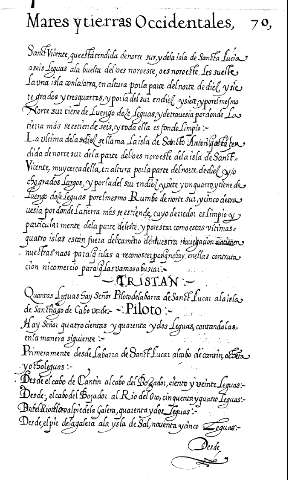 Mares y tierras Occidentales, 70,
Sanct Vicente, que esta tendida de norte sur, y dela isla de Sancta Lucia
leguas ala buelta del oes noroeste, oes sueste
la una isla con la otra, en altura por la parte del norte de diez y sie
te grados y tres quartos, y por la del sur en diez y siete, y por el mismo
Norte sur tiene de luengo leguas, y de traviesa por donde la
tierra mas se estiende seis, y toda ella es fondo limpio:
La ultima dela se llama la isla de Sancto
dida de norte sur dela parte del oes noroeste dela isla de Sanct
Vicente, muy cerca della, en altura por la parte del norte de diez y o
cho grados largos, y por la del sur en diez y siete y un quarto, y tiene de
luengo diez leguas por el mismo Rumbo de norte sur, y cinco de tra
uesia por donde la tierra mas se estiende, cuyo derredor es limpio y
particularmente dela parte del este, y por estas como estas vltimas
quatro islas estan fuera del camino de nuestra nauegacion
nuestras naos para yslas a reconoscer
ni comercio para
TRISTAN.
Quantas leguas hay Señor Piloto dela barra de Sanct Lucar ala isla
de Sanctiago de Cabo verde. Piloto:
Hay Señor quatrocientas y quarenta y dos leguas, contandolas
en la manera siguiente:
Primeramente desde la barra de Sanct Lucar al cabo de cantin,
y ocho leguas:
Desde el cabo de Cantin al cabo del Bojador, ciento y veinte leguas:
Desde el cabo del Bojador al Rio del Oro, cinquenta y quatro leguas:
Del Rio del Oro al pie dela galera, quarenta y dos leguas:
Desde el pie dela galera ala ysla de Sal, nouenta y cinco leguas:
Desde